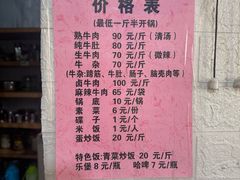 价格表
(最低一斤半开锅)
熟牛肉 90 元/斤 (清汤)
纯牛肚 80 元/斤
生牛肉 70 元/斤 (微辣)
牛杂 70 元/斤
(牛杂:蹄筋、牛肚、肠子、脑壳肉等)
卤牛肉 100 元/斤
麻辣牛肉 65 元/袋
锅底 10 元/锅
素菜 6 元/份
碟子 1 元/个
米饭 1 元/人
蛋炒饭 20 元/斤
特色饭:青菜炒饭 20 元/斤
乐堡 8 元/瓶 哈啤 7 元/瓶